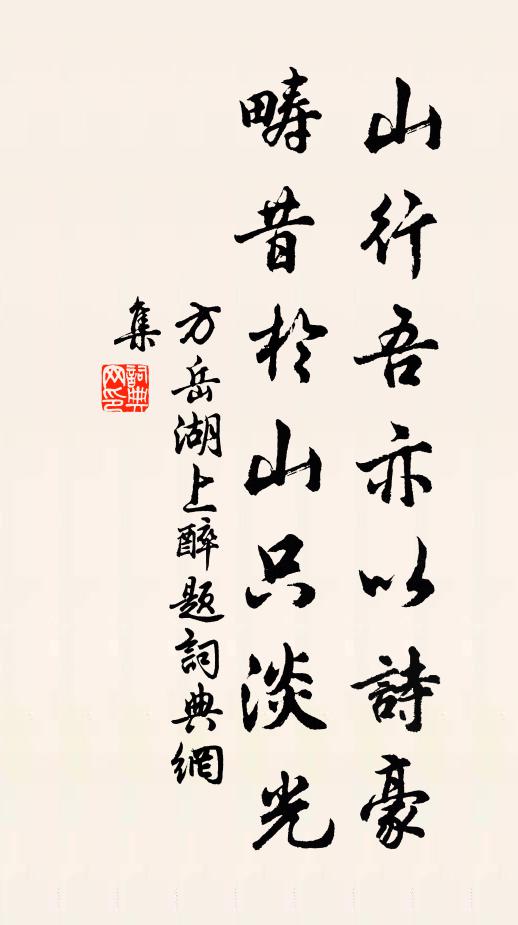 山行吾亦以詩豪
疇昔於山只淡光
方岳湖上醉题詞典網
集
詞典
网印